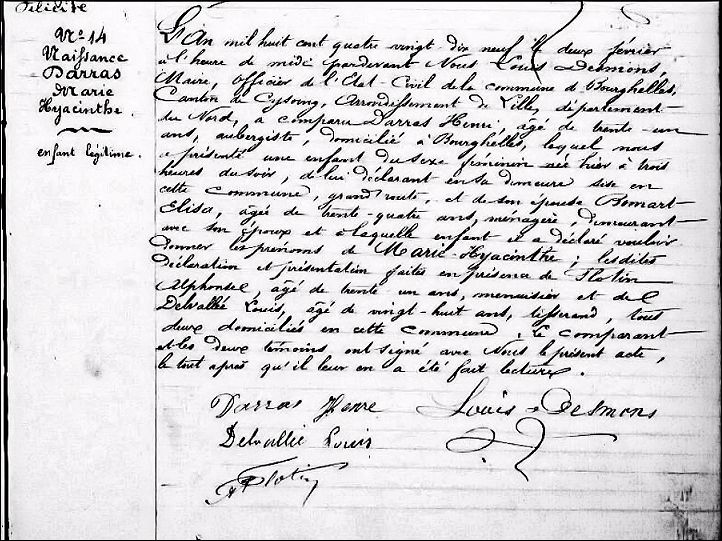 Félicité
N° 14
Naissance
Darras
Marie
Hyacinthe.
enfant légitime.
L'An mil huit cent quatre vingt-dix neuf le deux février
à l'heure de midi pardevant Nous Louis Desmons,
Maire, Officier de l'Etat-Civil de la commune de Bourghelles,
Canton de Cysoing, Arrondissement de Lille, département
du Nord, a comparu Darras Henri, âgé de trente-un
ans, aubergiste, domicilié à Bourghelles, lequel nous
a présenté une enfant du sexe féminin née hier à trois
heures du soir, de lui déclarant en sa demeure sise en
cette commune, grand'route, et de son épouse Bomart
Elisa, âgée de trente-quatre ans, ménagère, demeurant
avec son époux et à laquelle enfant il a déclaré vouloir
donner les prénoms de Marie-Hyacinthe; lesdites
déclaration et présentation faites en présence de Flotin
Alphonse, âgé de trente un ans, menuisier et de
Delvallée Louis, âgé de vingt-huit ans, tisserand, tous
deux domiciliés en cette commune. Le comparant
et les deux témoins ont signé avec Nous le présent acte,
le tout après qu'il leur en a été fait lecture.
Darras Henri Louis Desmons
Delvallée Louis
A Flotin